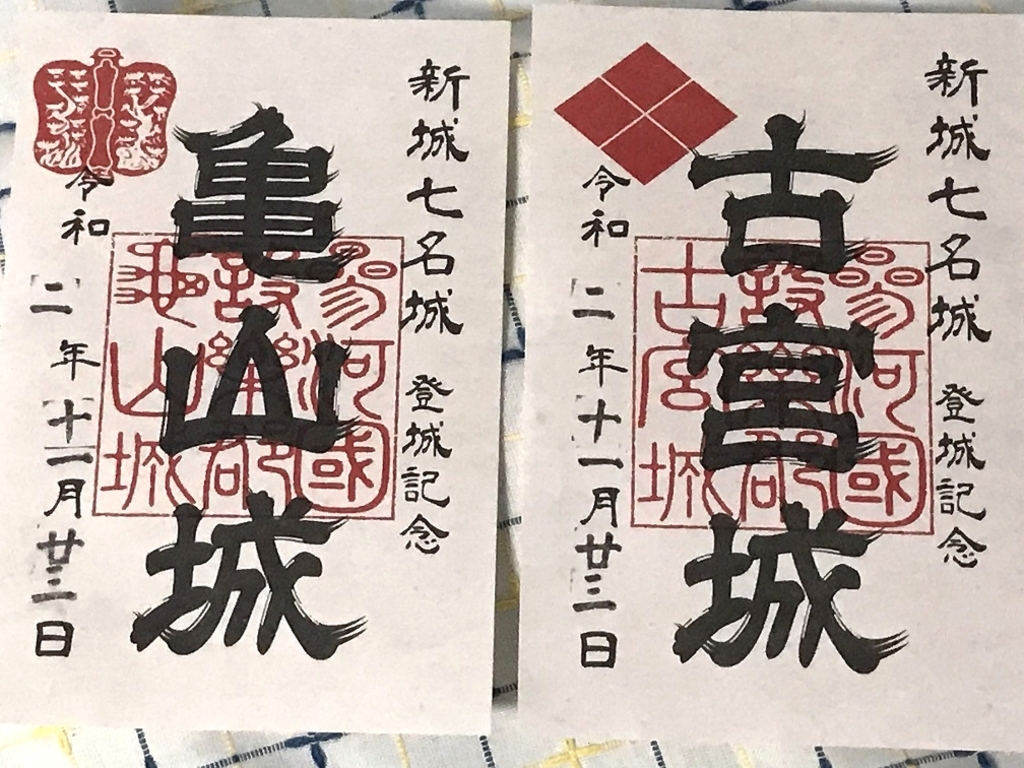 新城七名城 登城記念
亀山城
三河國
設樂郡
亀山城
令和二年十一月廿三日
新城七名城 登城記念
古宮城
三河國
設樂郡
古宮城
令和二年十一月廿三日